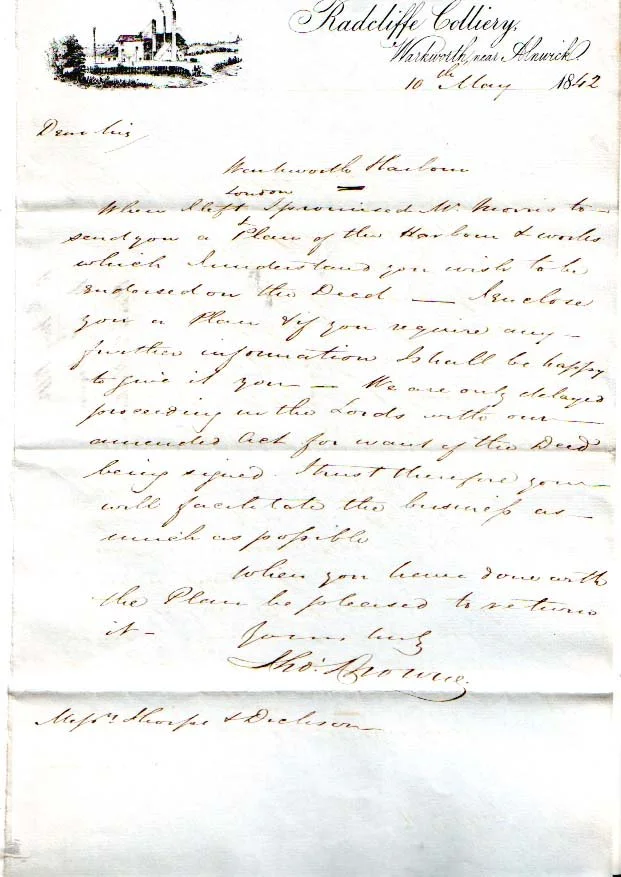 Radcliffe Colliery,
Warkworth, near Alnwick
10th May 1842
Dear Sir,
Warkworth Harbour
London
When I left I promised Mr. Morris to
send you a Plan of the Harbour & works
which I understand you wish to be
endorsed on the Deed — I enclose
you a Plan & if you require any
further information I shall be happy
to give it you — We are only delayed
proceeding in the Lords with our
amended Act for want of the Deed
being signed. I trust therefore you
will facilitate the business as
much as possible
When you have done with
the Plan be pleased to return
it - Yours truly
Thos.
Messrs. Thorpe & Dickson